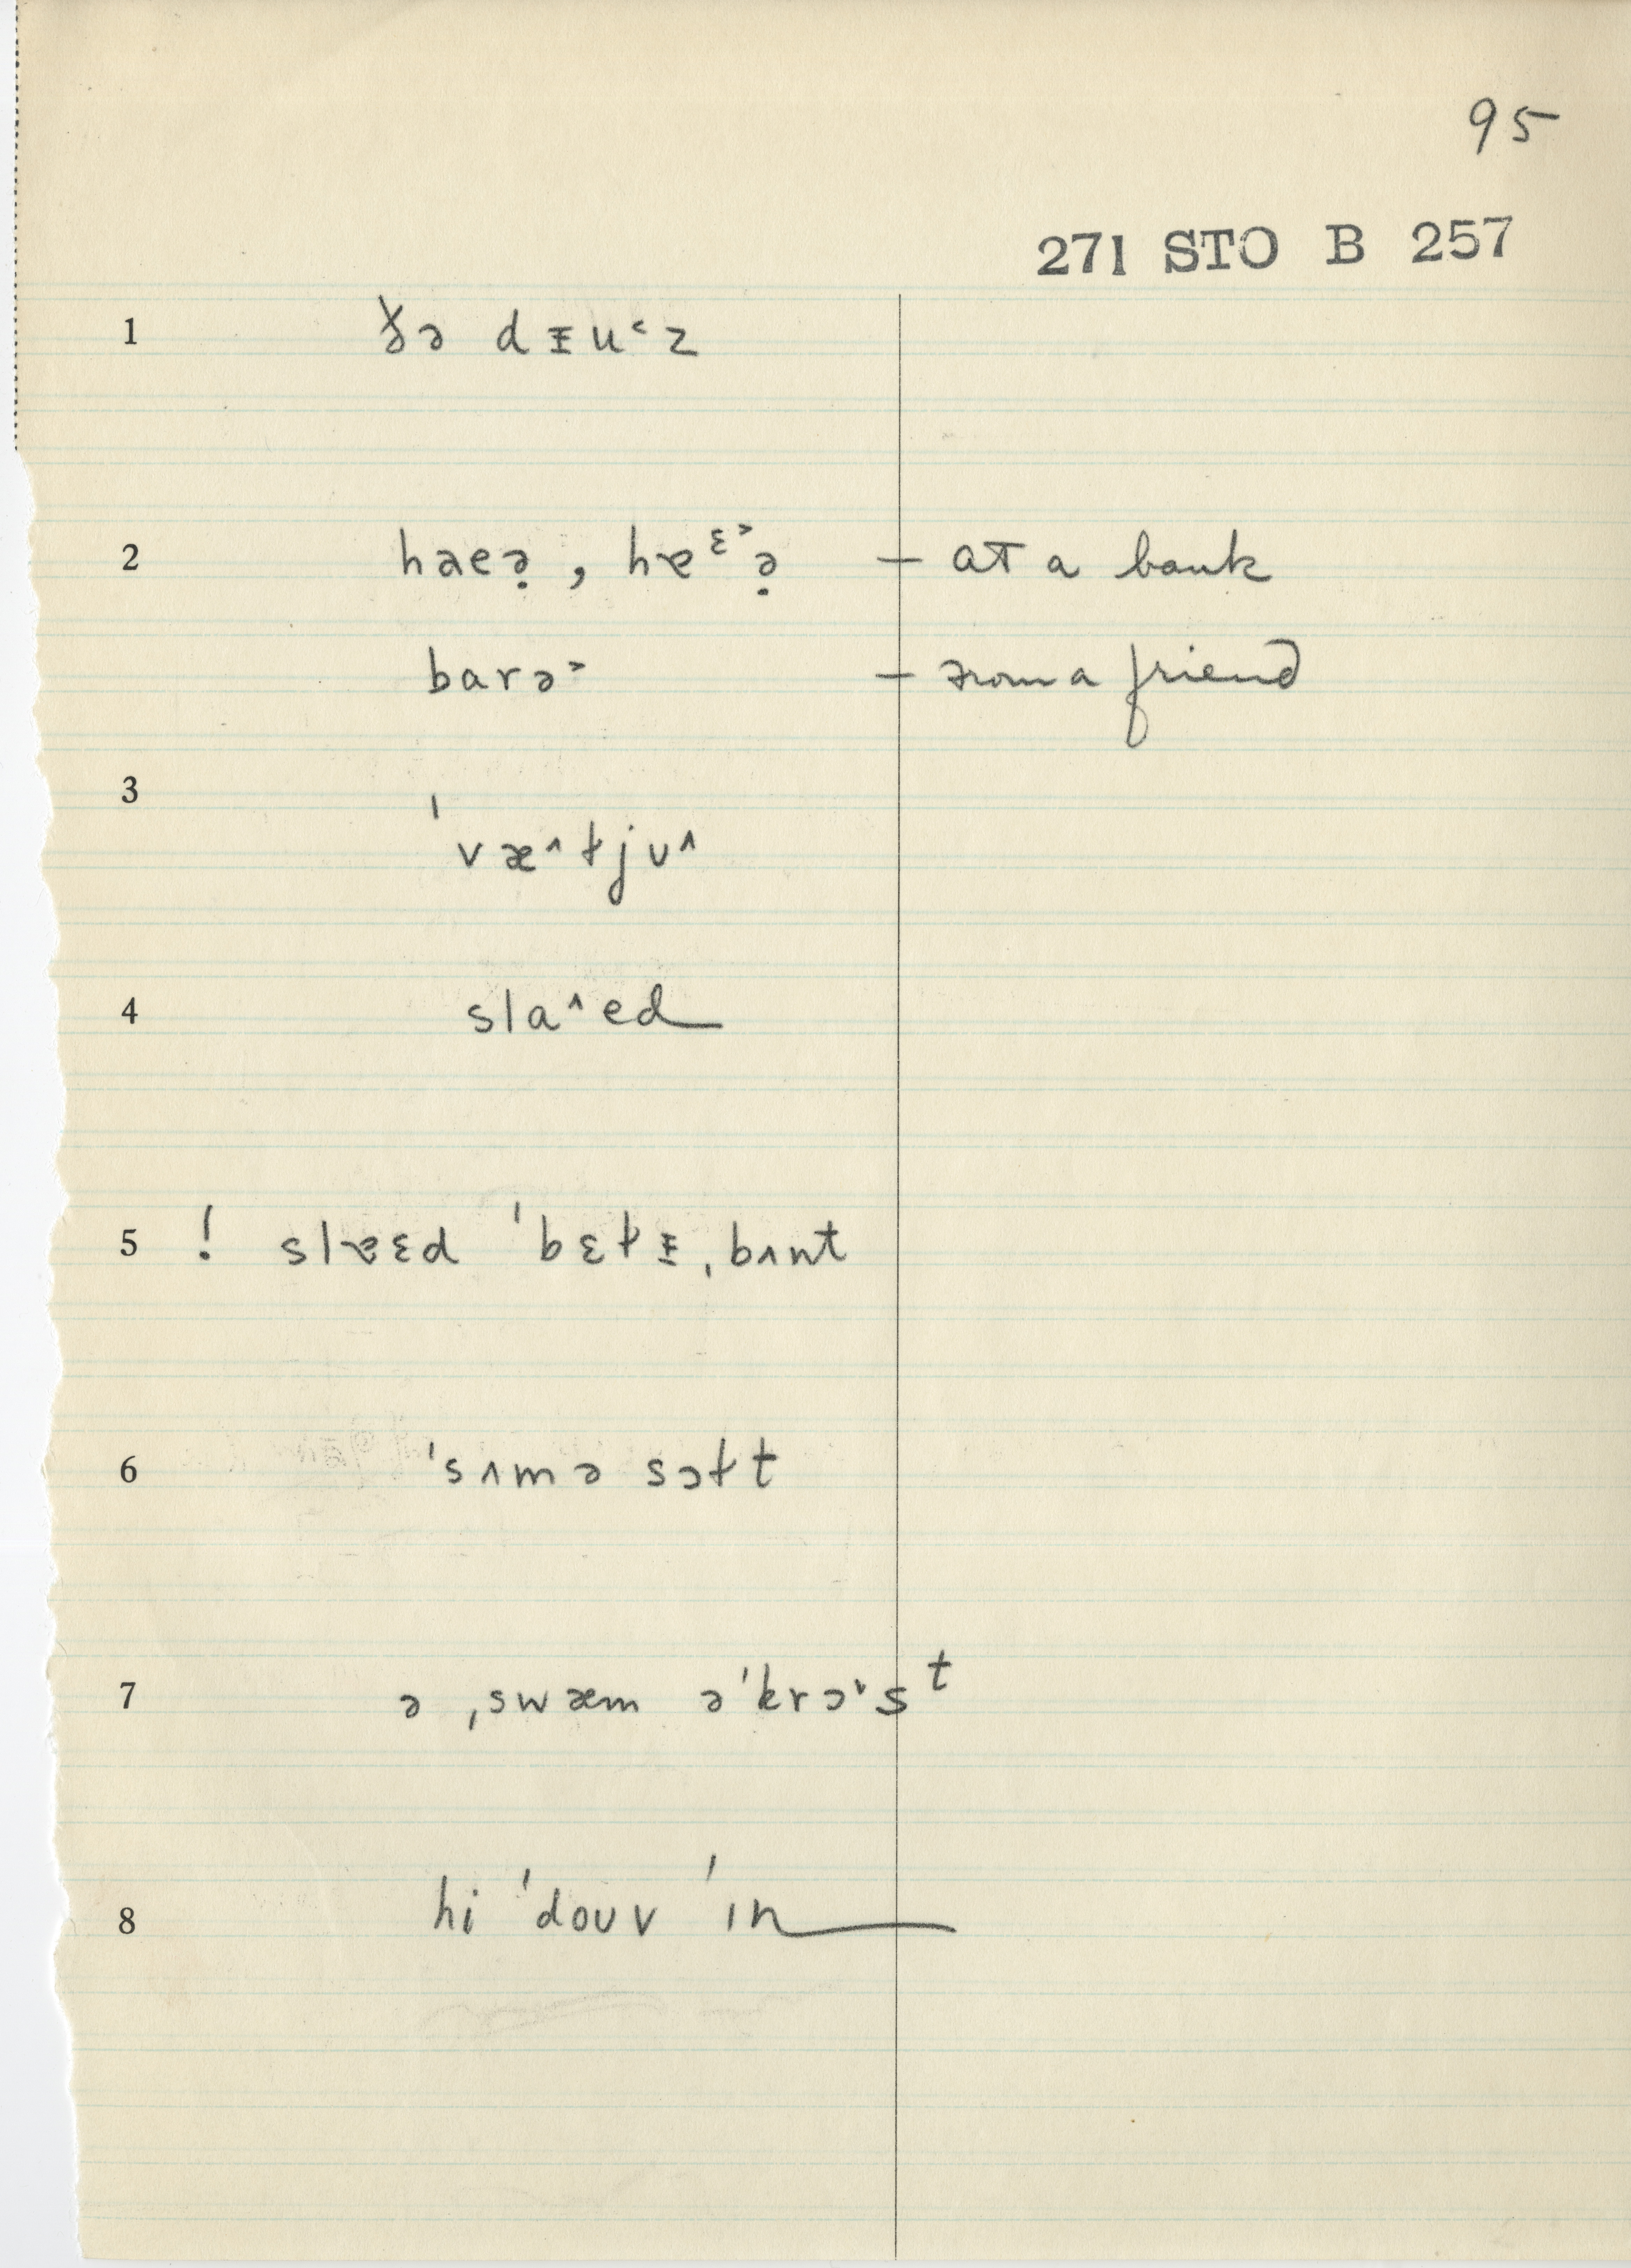 95
271 STO B 257
1 ɣ̵ə dᵻu˂z
2 haeə̣, hɐᵋ˃ə̣ – at a bank
barə˃ – from a friend
3 ˈvæ^ɫjʊ^
4 sla^ed
5 ! slɐɛd ˈbɛɫᵻ ˌbʌnt
6 ˈsʌmə sɔɫt
7 ə ˌswæm əˈkrɔ˅sᵗ
8 hi ˈdoʊv ˈɪn